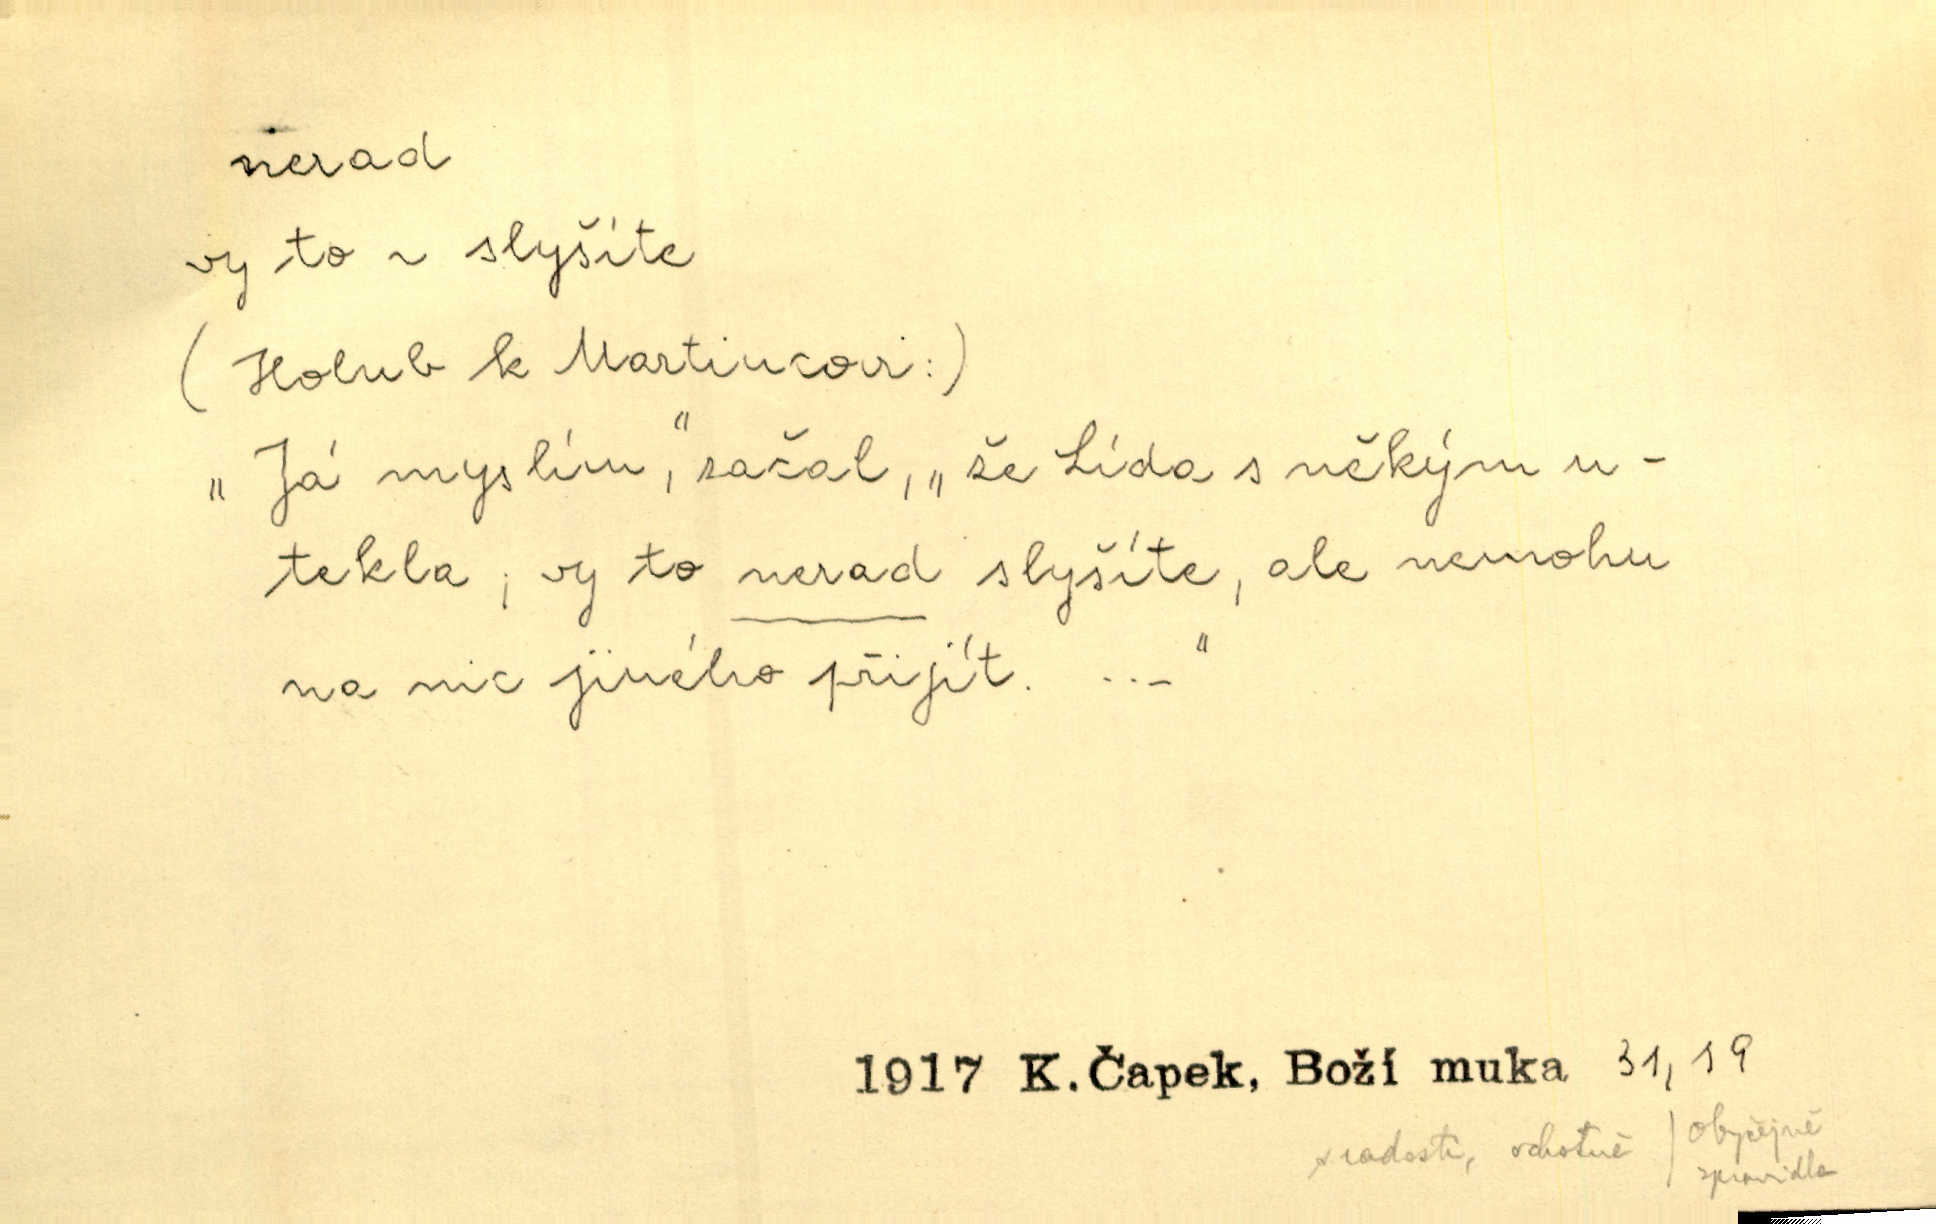 nerad
vy to ~ slyšíte
(Holub k Martincovi:)
„Já myslím,“ začal, „že Lída s někým u-
tekla; vy to nerad slyšíte, ale nemohu
na nic jiného přijít. ...“
1917 K. Čapek, Boží muka 31, 19
s radostí, ochotně / obyčejně
zpravidla